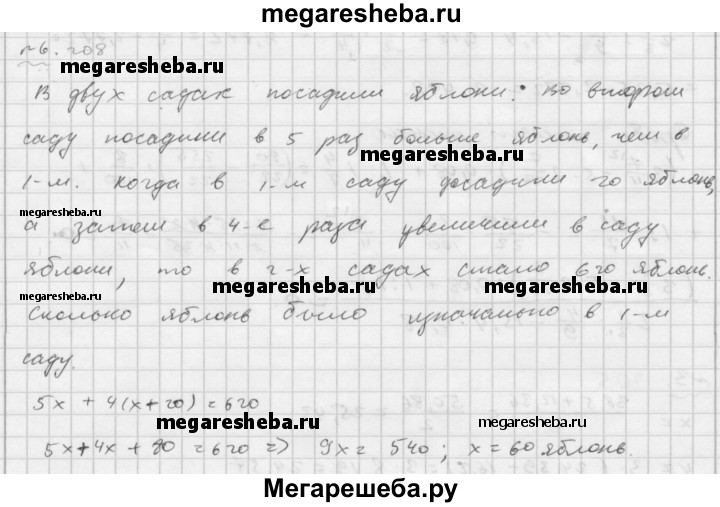 megaresheba.ru
№6. 208
megaresheba.ru
В двух садах посадили яблони. Во втором
саду посадили в 5 раз больше яблонь, чем в
megaresheba.ru
1-м. Когда в 1-м саду досадили 20 яблонь,
megaresheba.ru
а затем в 4-е раза увеличили в саду
яблони, то в 2-х садах стало 620 яблонь.
megaresheba.ru megaresheba.ru
megaresheba.ru
Сколько яблонь было изначально в 1-м
саду.
5x + 4(x+20) = 620
megaresheba.ru megaresheba.ru
5x + 4x + 80 = 620 => 9x = 540; x = 60 яблонь.
Мегарешеба.ру